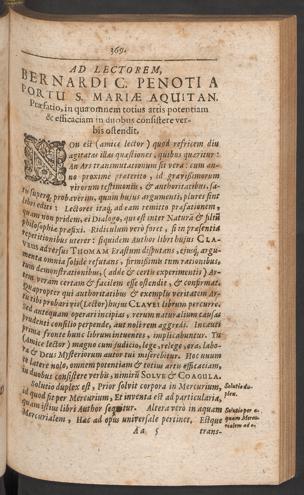 369.
AD LECTOREM,
BERNARDI C. PENOTI A
PORTU S. MARIÆ AQUITAN.
Præfatio, in qua omnem totius artis potentiam
& efficaciam in duobus consistere ver-
bis ostendit.
NOn est (amice lector) quod refricem diu
agitatas illas quæstiones, quibus quæritur:
An Ars transmutationum sit vera: cum an-
no proximè præterito, id gravissimorum
virorum testimoniis, & authoritatibus, sa-
tis superq; probaverim, quin hujus argumenti, plures sint
libri editi: Lectores itaq; ad eam remitto præfationem,
quam non pridem, ei Dialogo, qui est inter Naturā & filiū
philosophiæ præfixi. Ridiculum verò foret, si in præsentia
repetitionibus uterer: siquidem Author libri hujus CLA-
VEUS adversus THOMAM Erastum disputans, ejusq; argu-
menta omnia solidè refutans, firmissimis tum rationibus,
tum demonstrationibus, (adde & certis experimentis) Ar-
tem veram certam & facilem esse ostendit, & confirmat.
Quapropter qui authoritatibus & exemplis veritatem Ar-
tis tibi probari vis (Lector) hujus CLAVEI librum percurre:
sed antequam operari incipias, verum naturalium causas
prudenti consilio perpende, aut noli rem aggredi. Incauti
prima fronte hunc librum ineuntes, implicabuntur. Tu
(amice lector) magno cum judicio, lege, relege, ora, labo-
ra & Deus Mysteriorum autor tui miserebitur. Hoc unum
te latere nolo, omnem potentiam & totius artis efficaciam,
in duobus consistere verbis, nimirū SOLVE & COAGULA.
Solutio duplex est, Prior solvit corpora in Mercurium,
id quod fit per Mercurium, Et inventa est ad particularia,
quam istius libri Author sequitur. Altera verò in aquam
Mercurialem, Hæc ad opus universale pertinet. Estque
Solutio du-
plex.
Solutio per a-
quam Mercu-
rialem
Aa 5
trans-